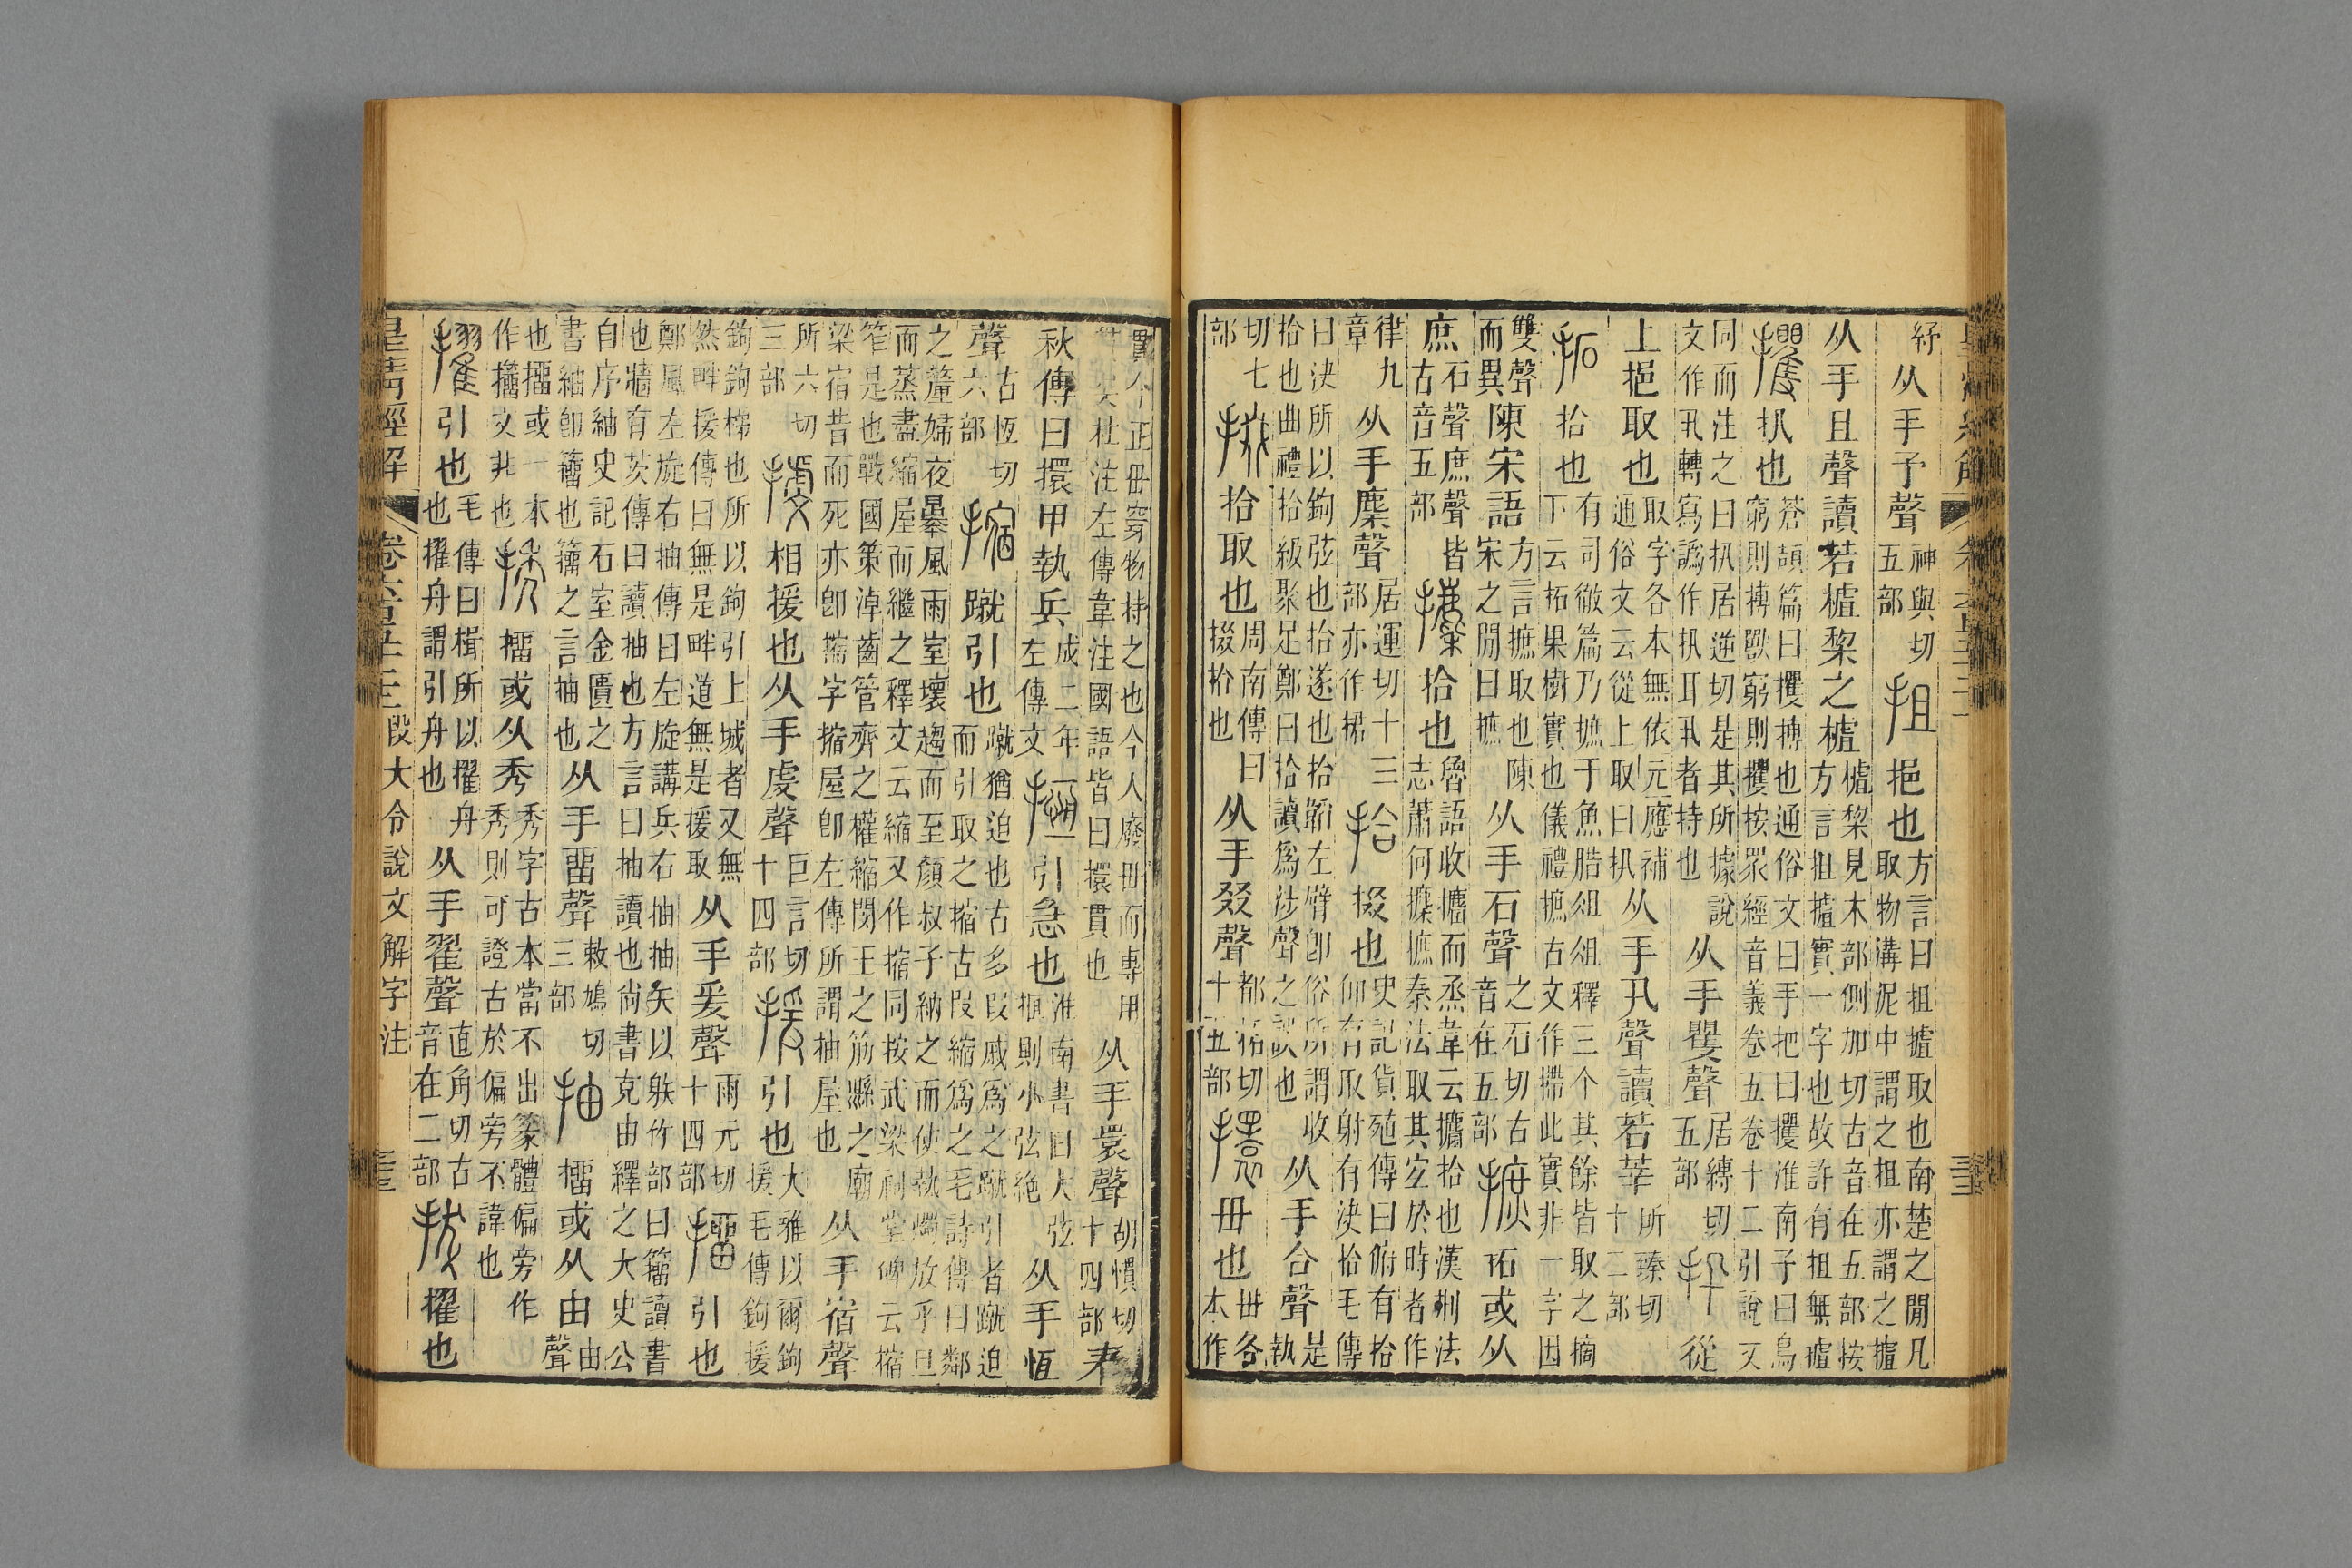 紓从手予聲神與切五部抯挹也方言曰抯摣取也南楚之閒凡取物溝泥中謂之抯亦謂之摣
从手且聲讀若樝棃之樝樝棃見木部側加切古音在五部按方言抯摣實一字也故許有抯無摣
攫扟也蒼頡篇曰攫搏也通俗文曰手把曰攫淮南子曰鳥窮則搏獸窮則攫按眾經音義卷五卷十二引說文
同而注之曰扟居逆切是其所據說文作丮轉寫譌作扟耳丮者持也从手矍聲居縛切五部扟從
上挹取也取字各本無依元應補通俗文云從上取曰扟从手卂聲讀若莘所臻切十二部
拓拾也有司徹篇乃摭于魚腊俎俎釋三个其餘皆取之摘下云拓果樹實也儀禮摭古文作摕此實非一字因
雙聲而異陳宋語方言摭取也陳宋之閒曰摭从手石聲之石切古音在五部摭拓或从
庶石聲庶聲皆古音五部攈拾也魯語收攟而烝韋云攟拾也漢刑法志蕭何攈摭秦法取其宐於時者作
律九章从手麇聲居運切十三部亦作捃拾掇也史記貨殖傳曰俯有拾仰有取射有決拾毛傳
曰決所以鉤弦也拾遂也拾韝左臂卽俗所謂收拾也曲禮拾級聚足鄭曰拾讀爲涉聲之誤也从手合聲是執
切七部掇拾取也周南傳曰掇拾也从手叕聲都括切十五部擐毌也毌各本作
貫今正毌穿物持之也今人廢毌而專用貫矣杜注左傳韋注國語皆曰擐貫也从手瞏聲胡慣切十四部春
秋傳曰擐甲執兵成二年左傳文揯引急也淮南書曰大弦揯則小弦絕从手恆
聲古恆切六部摍蹴引也蹴猶迫也古多叚戚爲之蹴引者蹴迫而引取之摍古叚縮爲之毛詩傳曰鄰
之釐婦夜暴風雨室壞趨而至顏叔子納之而使執燭放乎旦而蒸盡縮屋而繼之釋文云縮又作摍同按武梁祠堂碑云摍
笮是也戰國策淖齒管齊之權縮閔王之筋縣之廟梁宿昔而死亦卽摍字摍屋卽左傳所謂抽屋也从手宿聲
所六切三部㨮相援也从手虔聲巨言切十四部援引也大雅以爾鉤援毛傳鉤援
鉤鉤梯也所以鉤引上城者又無然畔援傳曰無是畔道無是援取从手爰聲雨元切十四部㩅引也
鄭風左旋右抽傳曰左旋講兵右抽抽矢以䠶竹部曰籀讀書也牆有茨傳曰讀抽也方言曰抽讀也尙書克由繹之大史公
自序紬史記石室金匱之書紬卽籀也籀之言抽也从手畱聲敕鳩切三部抽㩅或从由由聲
也㩅或一本作籀文非也㨨㩅或从秀秀字古本當不出篆體偏旁作秀則可證古於偏旁不諱也
擢引也毛傳曰楫所以擢舟也擢舟謂引舟也从手翟聲直角切古音在二部拔擢也
皇清經解 卷六百五十三 段大令說文解字注